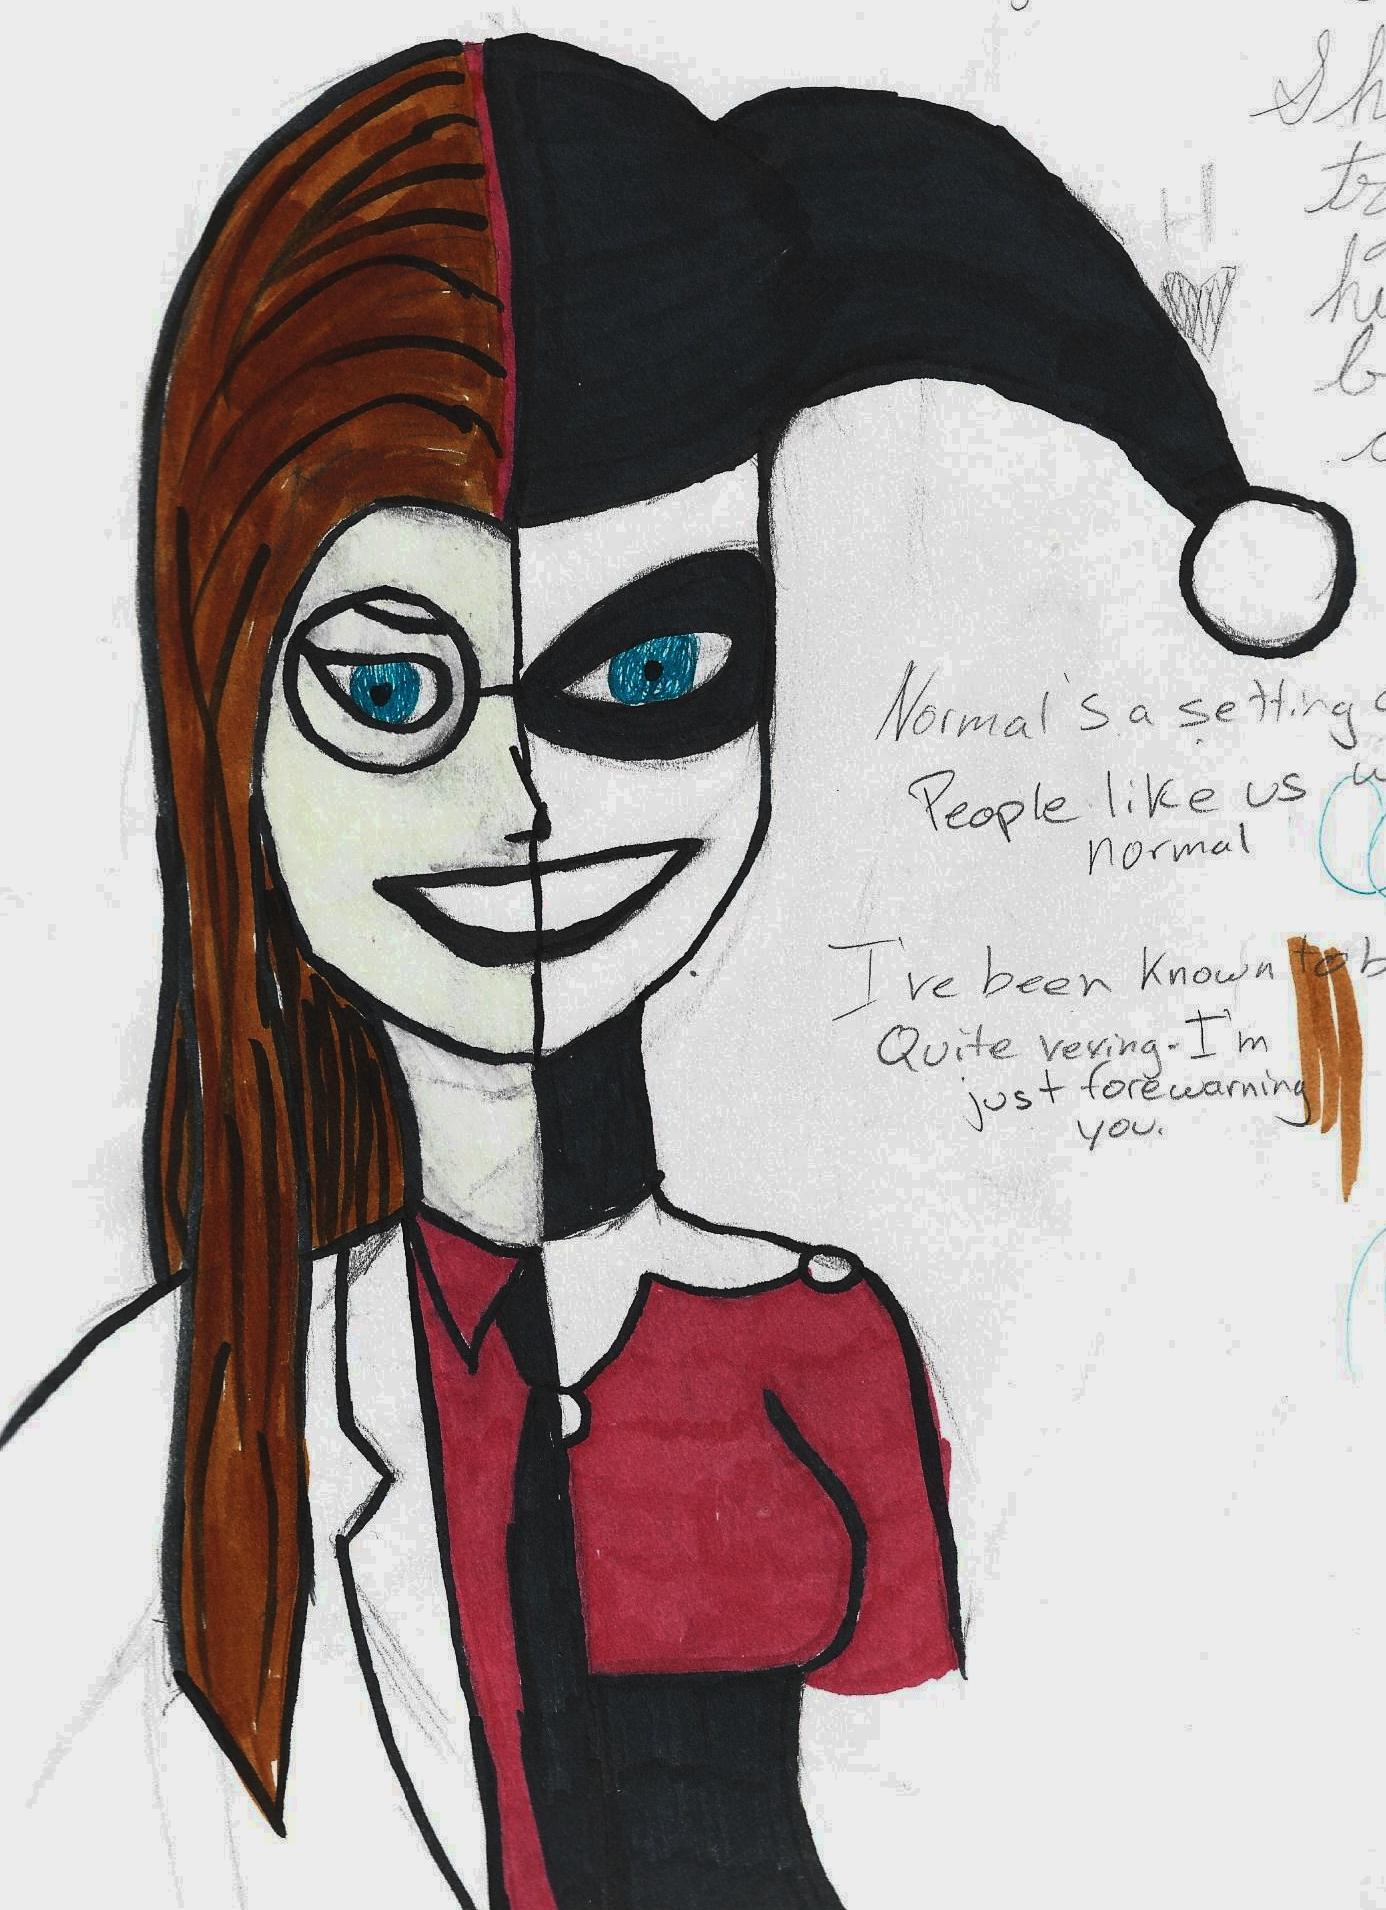 Sh
tr
H
Normal's a setting
People like us
normal
I've been known to b
Quite vexing. I'm
just forewarning
you.